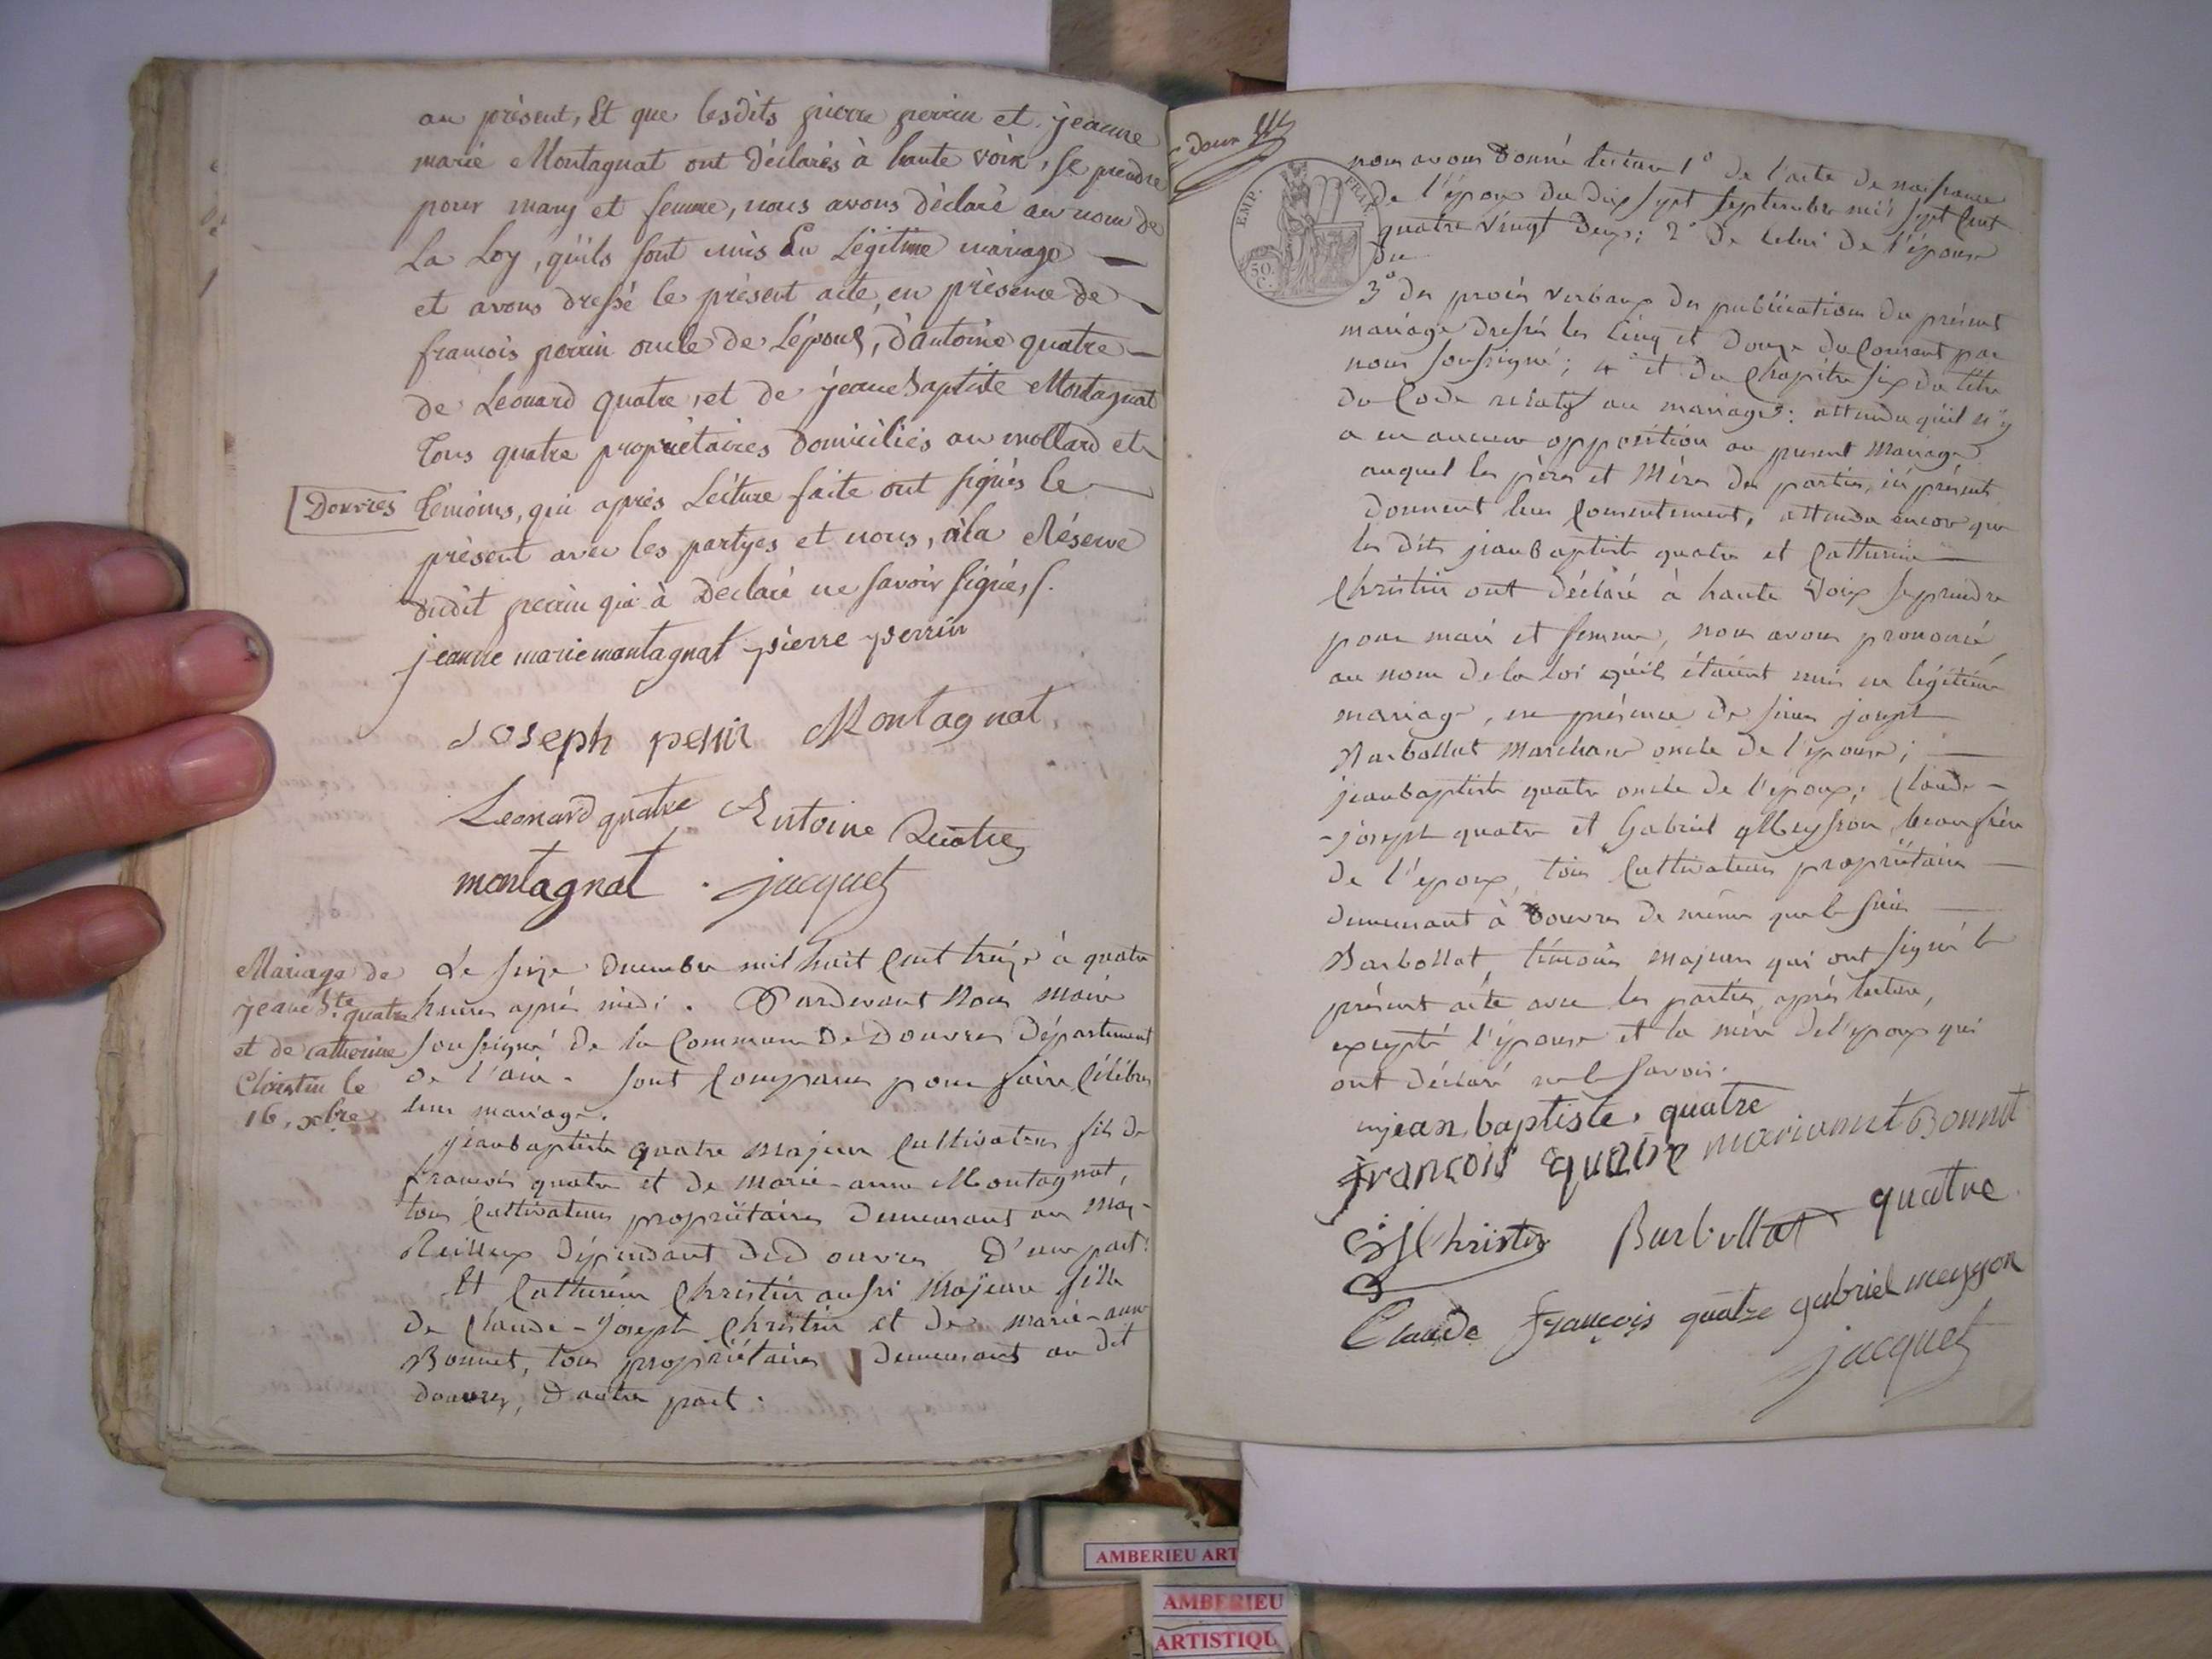 au présent, Et que lesdits pierre perrin et jeanne
marie Montagnat ont déclarés à haute voix, se prendre
pour mary et femme, nous avons déclaré au nom de
La Loy, qu'ils sont unis En Légitime mariage
et avons dressé le présent acte, en présence de
françois perrin oncle de Lépoux, d'antoine quatre
de Léonard quatre, et de jeanbaptiste Montagnat
Tous quatre propriétaires domiciliés au mollard et
Douvres
témoins, qui après Lecture faite ont signés le
présent avec les partyes et nous, à la Réserve
dudit perrin qui à Déclaré ne savoir signés.
jeanne marie montagnat pierre perrin
Joseph perrin Montagnat
Leonard quatre Antoine Quatre
montagnat . jacquet
Mariage de
jean Bte. quatre
et de catherine
Christin le
16, xbre
Le seize decembre mil huit Cent treize à quatre
heures après midi. Pardevant Nous Maire
soussigné de la Commune De Douvres Département
de l'ain. sont Comparus pour faire Célébrer
leur mariage.
jeanbaptiste quatre Majeur Cultivateur fils de
françois quatre et de Marie-anne Montagnat,
tous Cultivateurs propriétaires demeurant au
dépendant de Douvres D'une part.
Et Catherine Christin aussi Majeure fille
de Claude-Joseph Christin et de marie-anne
Bonnet, tous propriétaires demeurant au dit
douvres, D'autre part.
EMP. FRAN.
50. C.
nous avons donné lecture 1° de l'acte de naissance
de l'époux du dix sept septembre mil sept Cent
quatre vingt deux; 2° de Celui de l'épouse
du
3° des procès verbaux des publications du présent
mariage dressés les Cinq et Douze du Courant par
nous soussigné; 4° et du Chapitre six du titre
du Code relatif au mariage: attendu qu'il n'y
a eu aucune opposition au present Mariage
auquel les pères et Mères des parties, ici présents
donnent leur Consentement, attendu encore que
les dits jeanbaptiste quatre et Catherine
Christin ont déclaré à haute Voix se prendre
pour mari et femme, nous avons prononcé
au nom de la loi qu'ils étaient unis en légitime
mariage, en présence de sieur joseph
Barbollat Marchand oncle de l'épouse;
jeanbaptiste quatre oncle de l'époux; Claude-
-joseph quatre et Gabriel Meysson beaufrère
de l'époux, tous Cultivateurs propriétaires
demeurant à Douvres de même que le sieur
Barbollat, témoins Majeurs qui ont signé le
présent acte avec les parties, après lecture,
excepté l'épouse et la mère de l'époux qui
ont déclaré ne le savoir.
jean baptiste quatre
françois quatre marianne Bonnet
Christin Barbollat quatre
Claude françois quatre gabriel meysson
jacquet
AMBERIEU ART
AMBERIEU
ARTISTIQU